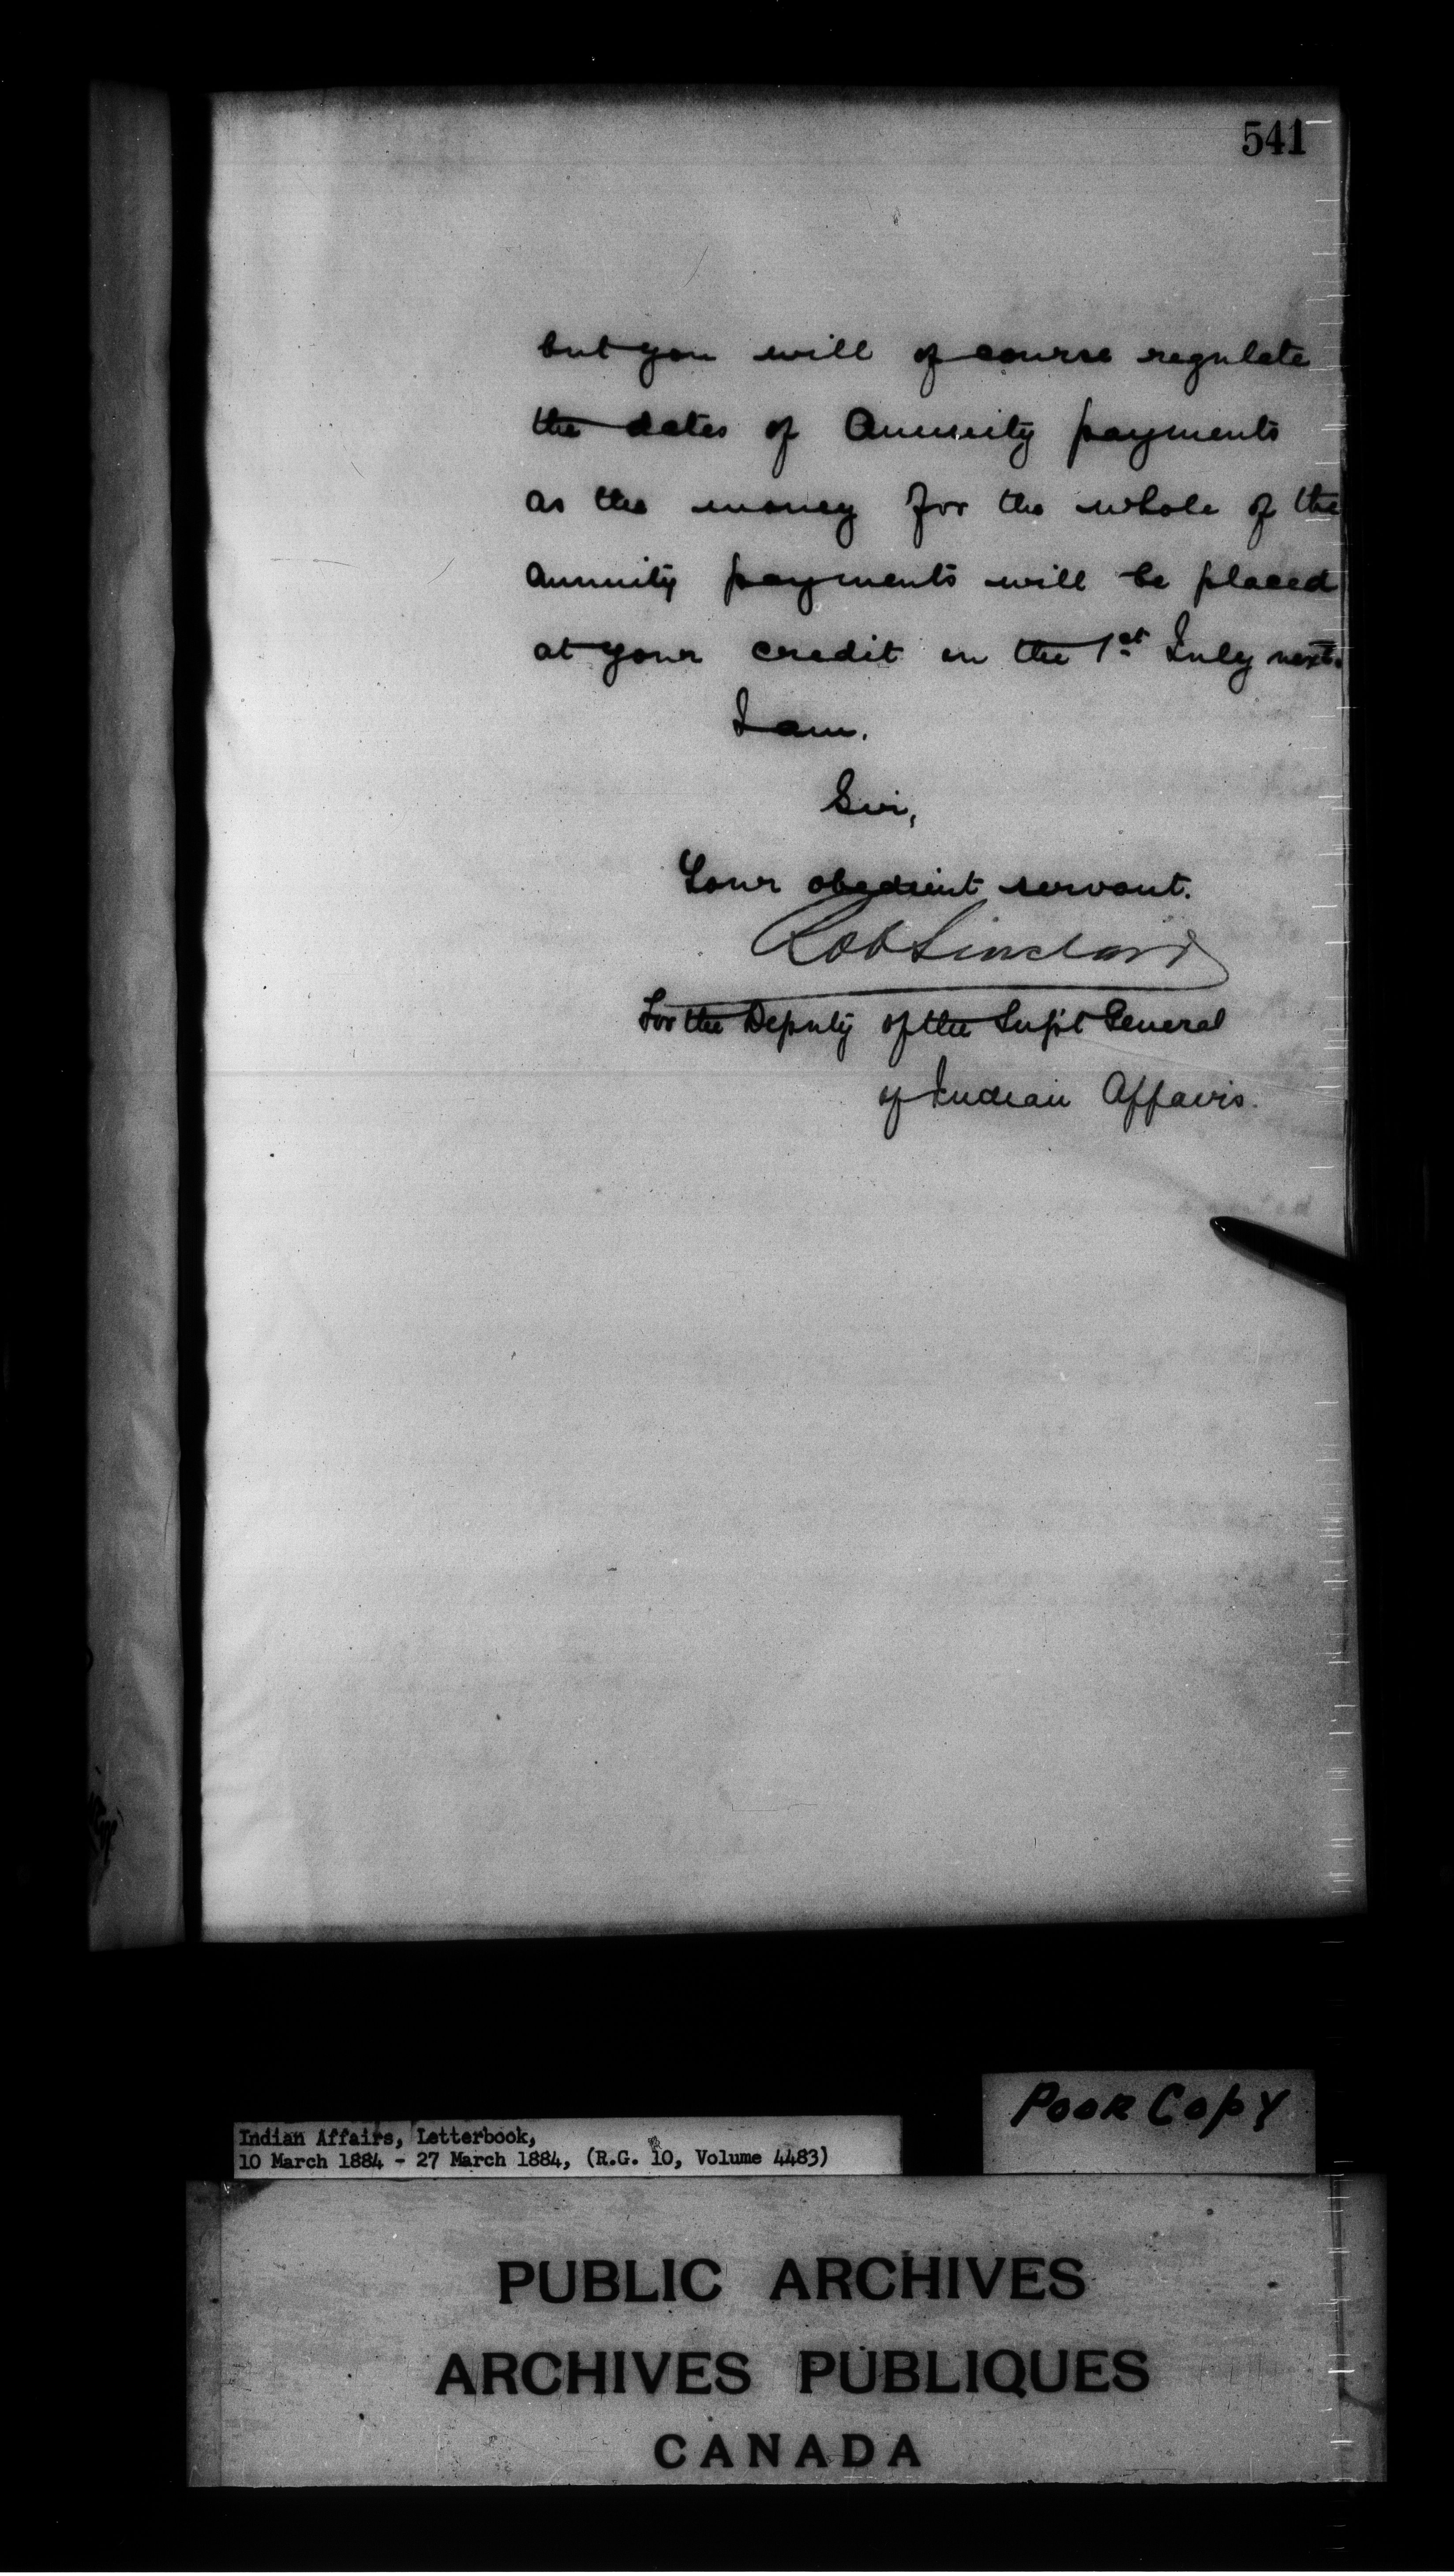 541
but you will of course regulate
the dates of Annuity payments
as the money for the whole of the
annuity payments will be placed
at your credit on the 1st July next.
I am,
Sir,
Your obedient servant.
Rob Sinclair
For the Deputy of the Supt General
of Indian Affairs.
Poor Copy
Indian Affairs, Letterbook,
10 March 1884 - 27 March 1884, (R.G. 10, Volume 4483)
PUBLIC ARCHIVES
ARCHIVES PUBLIQUES
CANADA